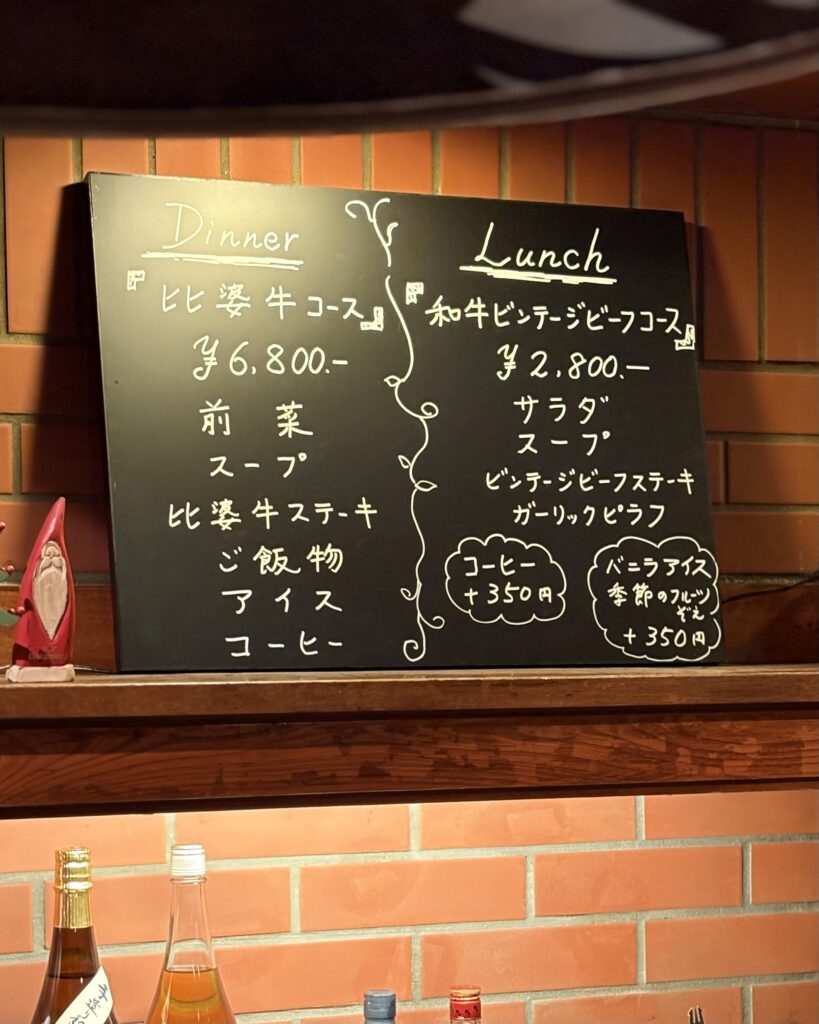 Dinner
『比婆牛コース』
¥6,800.-
前菜
スープ
比婆牛ステーキ
ご飯物
アイス
コーヒー
Lunch
『和牛ビンテージビーフコース』
¥2,800.-
サラダ
スープ
ビンテージビーフステーキ
ガーリックピラフ
コーヒー
+350円
バニラアイス
季節のフルーツ
ぞえ
+350円